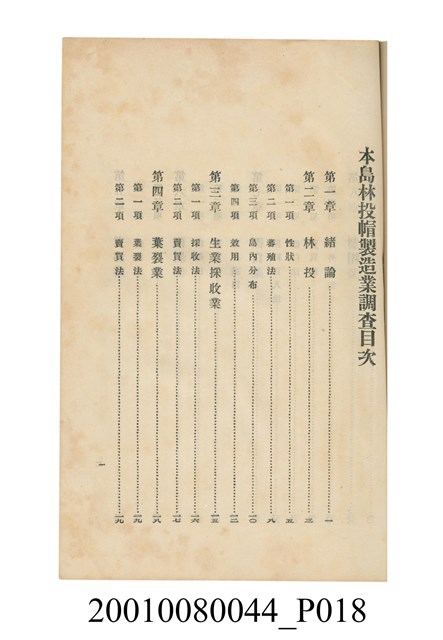 本島林投帽製造業調查目次
第一章 緒論……一
第二章 林投……三
第一項 性狀……五
第二項 蕃殖法……八
第三項 島內分布……一〇
第四項 效用……一二
第三章 生葉採收業……一五
第一項 採收法……一六
第二項 賣買法……一七
第四章 葉裂業……一八
第一項 葉裂法……一九
第二項 賣買法……一九
一
20010080044_P018